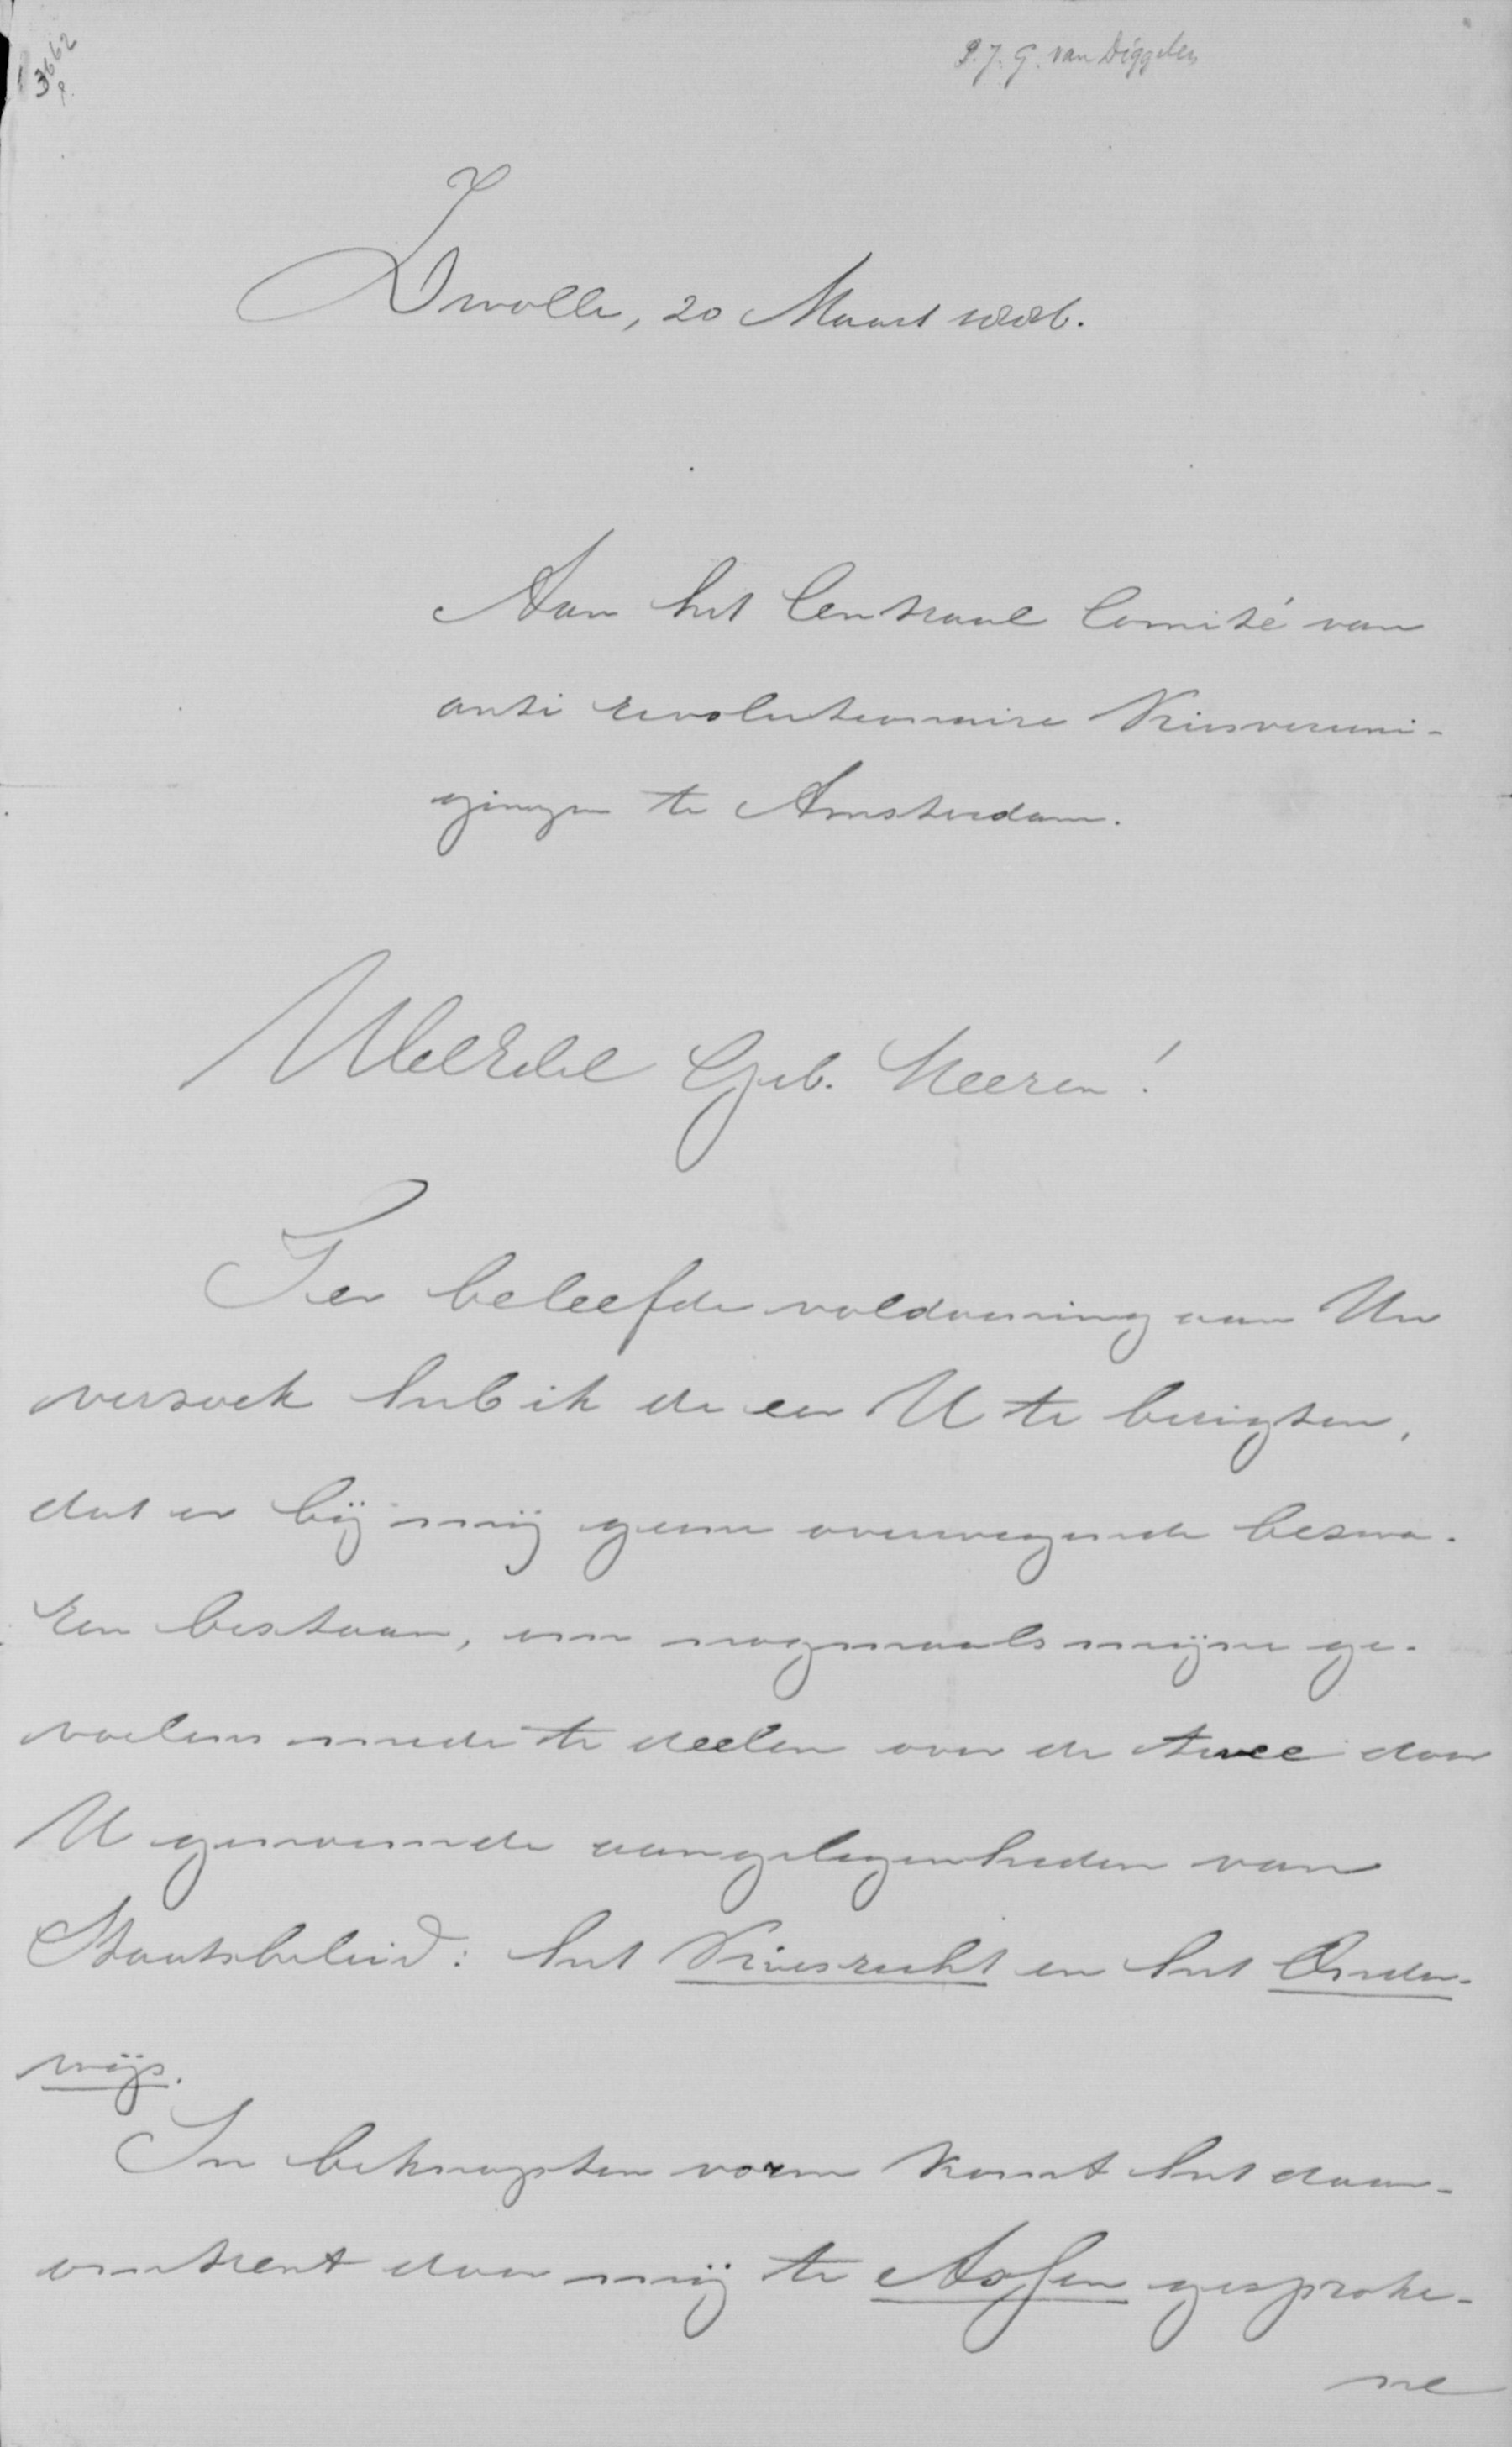 3662
P.
P. J. G. van Diggelen
Zwolle, 20 Maart 1886.
Aan het Centraal Comité van
anti revolutionaire Kiesvereeni-
gingen te Amsterdam.
WelEdel Geb. Heeren!
Ter beleefde voldoening aan Uw
verzoek heb ik de eer U te berigten,
dat er bij mij geene overwegende bezwa-
ren bestaan, om nogmaals mijne ge-
voelens mede te deelen over de twee door
U genoemde aangelegenheden van
Staatsbeleid: het Kiesrecht en het Onder-
wijs.
In beknopten vorm komt het daar-
omtrent door mij te gesproke-
ne